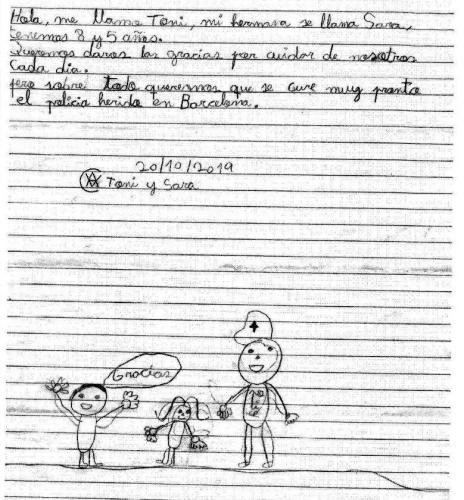 Hola, me llamo Toni, mi hermana se llama Sara,
tenemos 8 y 5 años.
Queremos daros las gracias por cuidar de nosotros
cada dia.
pero sobre todo queremos que se cure muy pronto
el policia herido en Barcelona.
20/10/2019
Toni y Sara
Gracias